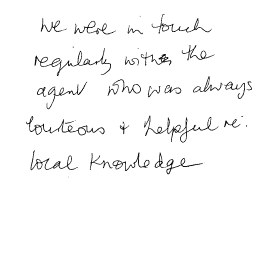 We were in touch
regularly with the
agent who was always
courteous & helpful re:
local knowledge